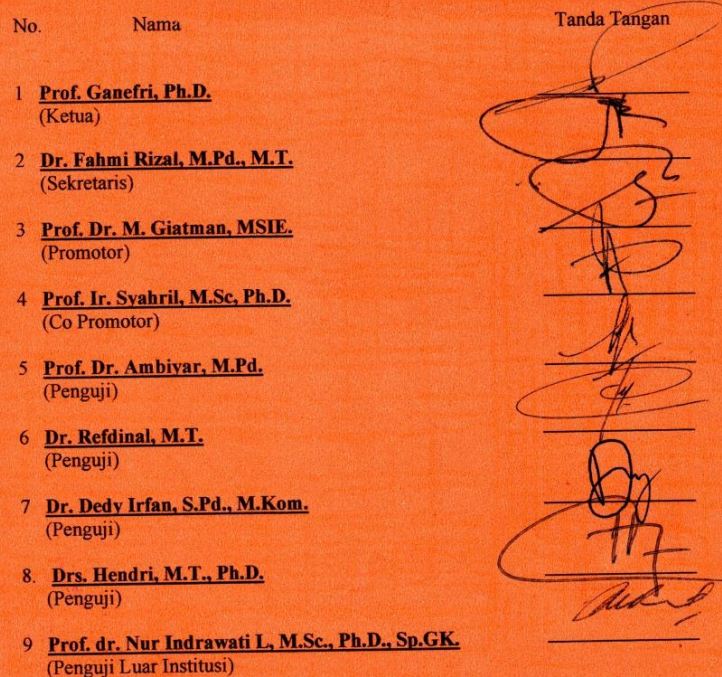 No. Nama Tanda Tangan
1 Prof. Ganefri, Ph.D.
(Ketua)
2 Dr. Fahmi Rizal, M.Pd., M.T.
(Sekretaris)
3 Prof. Dr. M. Giatman, MSIE.
(Promotor)
4 Prof. Ir. Syahril, M.Sc, Ph.D.
(Co Promotor)
5 Prof. Dr. Ambiyar, M.Pd.
(Penguji)
6 Dr. Refdinal, M.T.
(Penguji)
7 Dr. Dedy Irfan, S.Pd., M.Kom.
(Penguji)
8. Drs. Hendri, M.T., Ph.D.
(Penguji)
9 Prof. dr. Nur Indrawati L, M.Sc., Ph.D., Sp.GK.
(Penguji Luar Institusi)